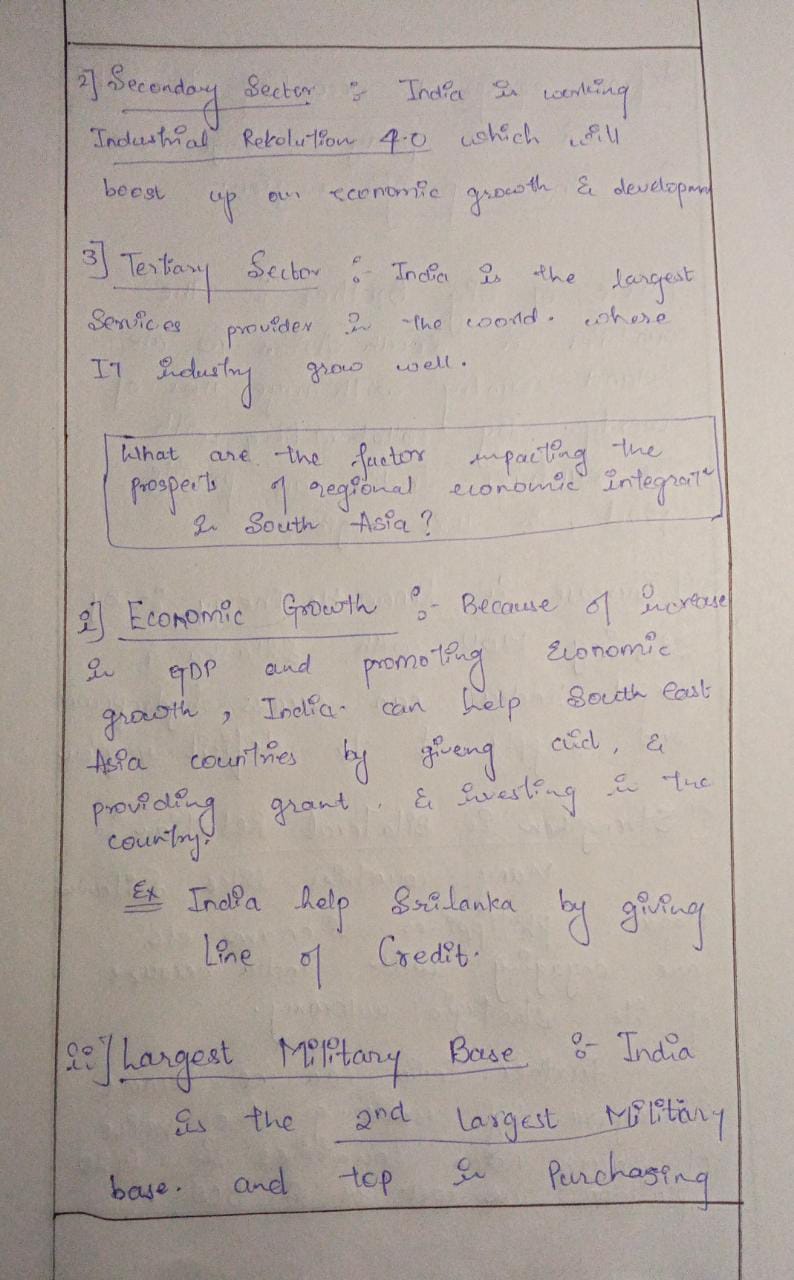 2] Secondary Sector :- India is working
Industrial Revolution 4.0 which will
boost up our economic growth & developm
3] Tertiary Sector :- India is the largest
Services provider in the world. where
IT industry grow well.
What are the factor impacting the
prospects of regional economic integrat
in South Asia?
i] Economic Growth :- Because of increase
in GDP and promoting Economic
growth, India can help South East
Asia countries by giveng aid, &
providing grant, & investing in the
country.
Ex India help Srilanka by giving
Line of Credit.
ii] Largest Military Base :- India
is the 2nd largest Military
base. and top in Purchasing